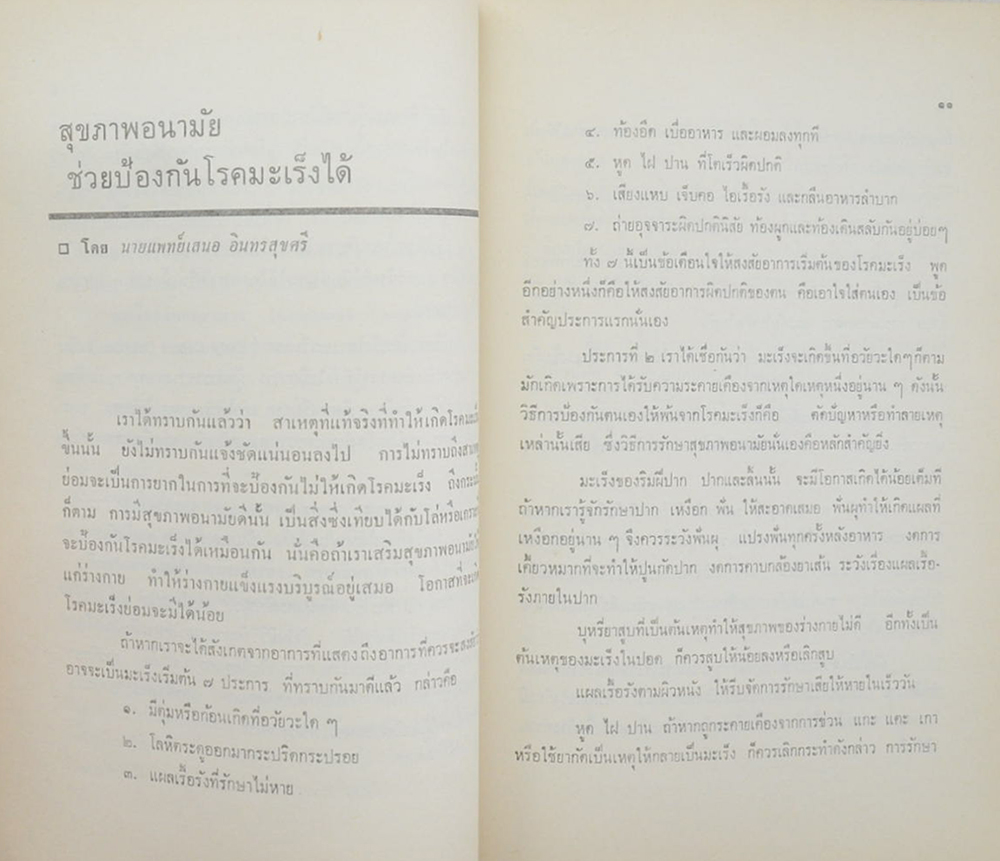 สุขภาพอนามัย
ช่วยป้องกันโรคมะเร็งได้
โดย นายแพทย์เสนอ อินทรสุขศรี
เราได้ทราบกันแล้วว่า สาเหตุที่แท้จริงที่ทำให้เกิดโรคมะเร็
ขึ้นนั้น ยังไม่ทราบกันแจ้งชัดแน่นอนลงไป การไม่ทราบถึงสาเหตุ
ย่อมจะเป็นการยากในการที่จะป้องกันไม่ให้เกิดโรคมะเร็ง ถึงกระนั้
ก็ตาม การมีสุขภาพอนามัยดีนั้น เป็นสิ่งซึ่งเทียบได้กับโล่หรือเกราะ
จะป้องกันโรคมะเร็งได้เหมือนกัน นั่นคือถ้าเราเสริมสุขภาพอนามัย
แก่ร่างกาย ทำให้ร่างกายแข็งแรงบริบูรณ์อยู่เสมอ โอกาสที่จะเกิ
โรคมะเร็งย่อมจะมีได้น้อย
ถ้าหากเราจะได้สังเกตจากอาการที่แสดงถึงอาการที่ควรจะสงสัย
อาจจะเป็นมะเร็งเริ่มต้น ๗ ประการ ที่ทราบกันมาดีแล้ว กล่าวคือ
๑. มีตุ่มหรือก้อนเกิดที่อวัยวะใด ๆ
๒. โลหิตระดูออกมากระปริดกระปรอย
๓. แผลเรื้อรังที่รักษาไม่หาย
๑๑
๔. ท้องอืด เบื่ออาหาร และผอมลงทุกที
๕. หูด ไฝ ปาน ที่โตเร็วผิดปกติ
๖. เสียงแหบ เจ็บคอ ไอเรื้อรัง และกลืนอาหารลำบาก
๗. ถ่ายอุจจาระผิดปกตินิสัย ท้องผูกและท้องเดินสลับกันอยู่บ่อยๆ
ทั้ง ๗ นี้เป็นข้อเตือนใจให้สงสัยอาการเริ่มต้นของโรคมะเร็ง พูด
อีกอย่างหนึ่งก็คือให้สงสัยอาการผิดปกติของตน คือเอาใจใส่ตนเอง เป็นข้อ
สำคัญประการแรกนั่นเอง
ประการที่ ๒ เราได้เชื่อกันว่า มะเร็งจะเกิดขึ้นที่อวัยวะใดๆก็ตาม
มักเกิดเพราะการได้รับความระคายเคืองจากเหตุใดเหตุหนึ่งอยู่นาน ๆ ดังนั้น
วิธีการป้องกันตนเองให้พ้นจากโรคมะเร็งก็คือ ตัดปัญหาหรือทำลายเหตุ
เหล่านั้นเสีย ซึ่งวิธีการรักษาสุขภาพอนามัยนั่นเองคือหลักสำคัญยิ่ง
มะเร็งของริมฝีปาก ปากและลิ้นนั้น จะมีโอกาสเกิดได้น้อยเต็มที
ถ้าหากเรารู้จักรักษาปาก เหงือก ฟัน ให้สะอาดเสมอ ฟันผุทำให้เกิดแผลที่
เหงือกอยู่นาน ๆ จึงควรระวังฟันผุ แปรงฟันทุกครั้งหลังอาหาร งดการ
เคี้ยวหมากที่จะทำให้ปูนกัดปาก งดการคาบกล้องยาเส้น ระวังเรื่องแผลเรื้อ-
รังภายในปาก
บุหรี่ยาสูบที่เป็นต้นเหตุทำให้สุขภาพของร่างกายไม่ดี อีกทั้งเป็น
ต้นเหตุของมะเร็งในปอด ก็ควรสูบให้น้อยลงหรือเลิกสูบ
แผลเรื้อรังตามผิวหนัง ให้รีบจัดการรักษาเสียให้หายในเร็ววัน
หูด ไฝ ปาน ถ้าหากถูกระคายเคืองจากการข่วน แกะ แคะ เกา
หรือใช้ยากัดเป็นเหตุให้กลายเป็นมะเร็ง ก็ควรเลิกกระทำดังกล่าว การรักษา